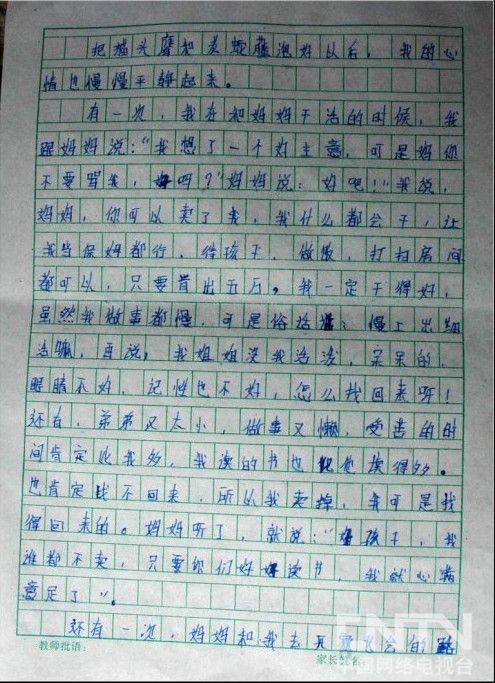 把猫头磨和炎蛇藤泡好以后，我的心
情也慢慢平静起来。
有一次，我在和妈妈干活的时候，我
跟妈妈说：“我想了一个好主意，可是妈你
不要骂我，好吗？”妈妈说：好吧！”我说，
妈妈，你可以卖了我，我什么都会干，让
我当保姆都行，待孩子，做饭，打扫房间
都可以，只要肯出五万。我一定干得好，
虽然我做事都慢，可是俗话说：慢工出细
活嘛，再说，我姐姐没我活泼，呆呆的，
眼睛不好，记性也不好，怎么找回来呀！
还有，弟弟又太小，做事又懒，受苦的时
间肯定比我多，我读的书也比他读得多。
也肯定找不回来，所以我卖掉，我可是找
得回来的。妈妈听了，就说：“好孩子，我
谁都不卖，只要你们好好读书，我就心满
意足了”。
还有一次，妈妈和我去天 飞会的路
教师批语：
家长签名
CNTV
中国网络电视台